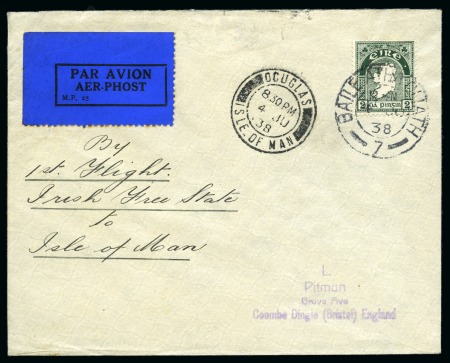 PAR AVION
AER-PHOST
M.P. 25
DOUGLAS
8.30PM
4 JU
38
ISLE OF MAN
EIRE
2 2
38
7
By
1st Flight.
Irish Free State
to
Isle of Man
L.
Pitman
Grove Ave
Coombe Dingle (Bristol) England